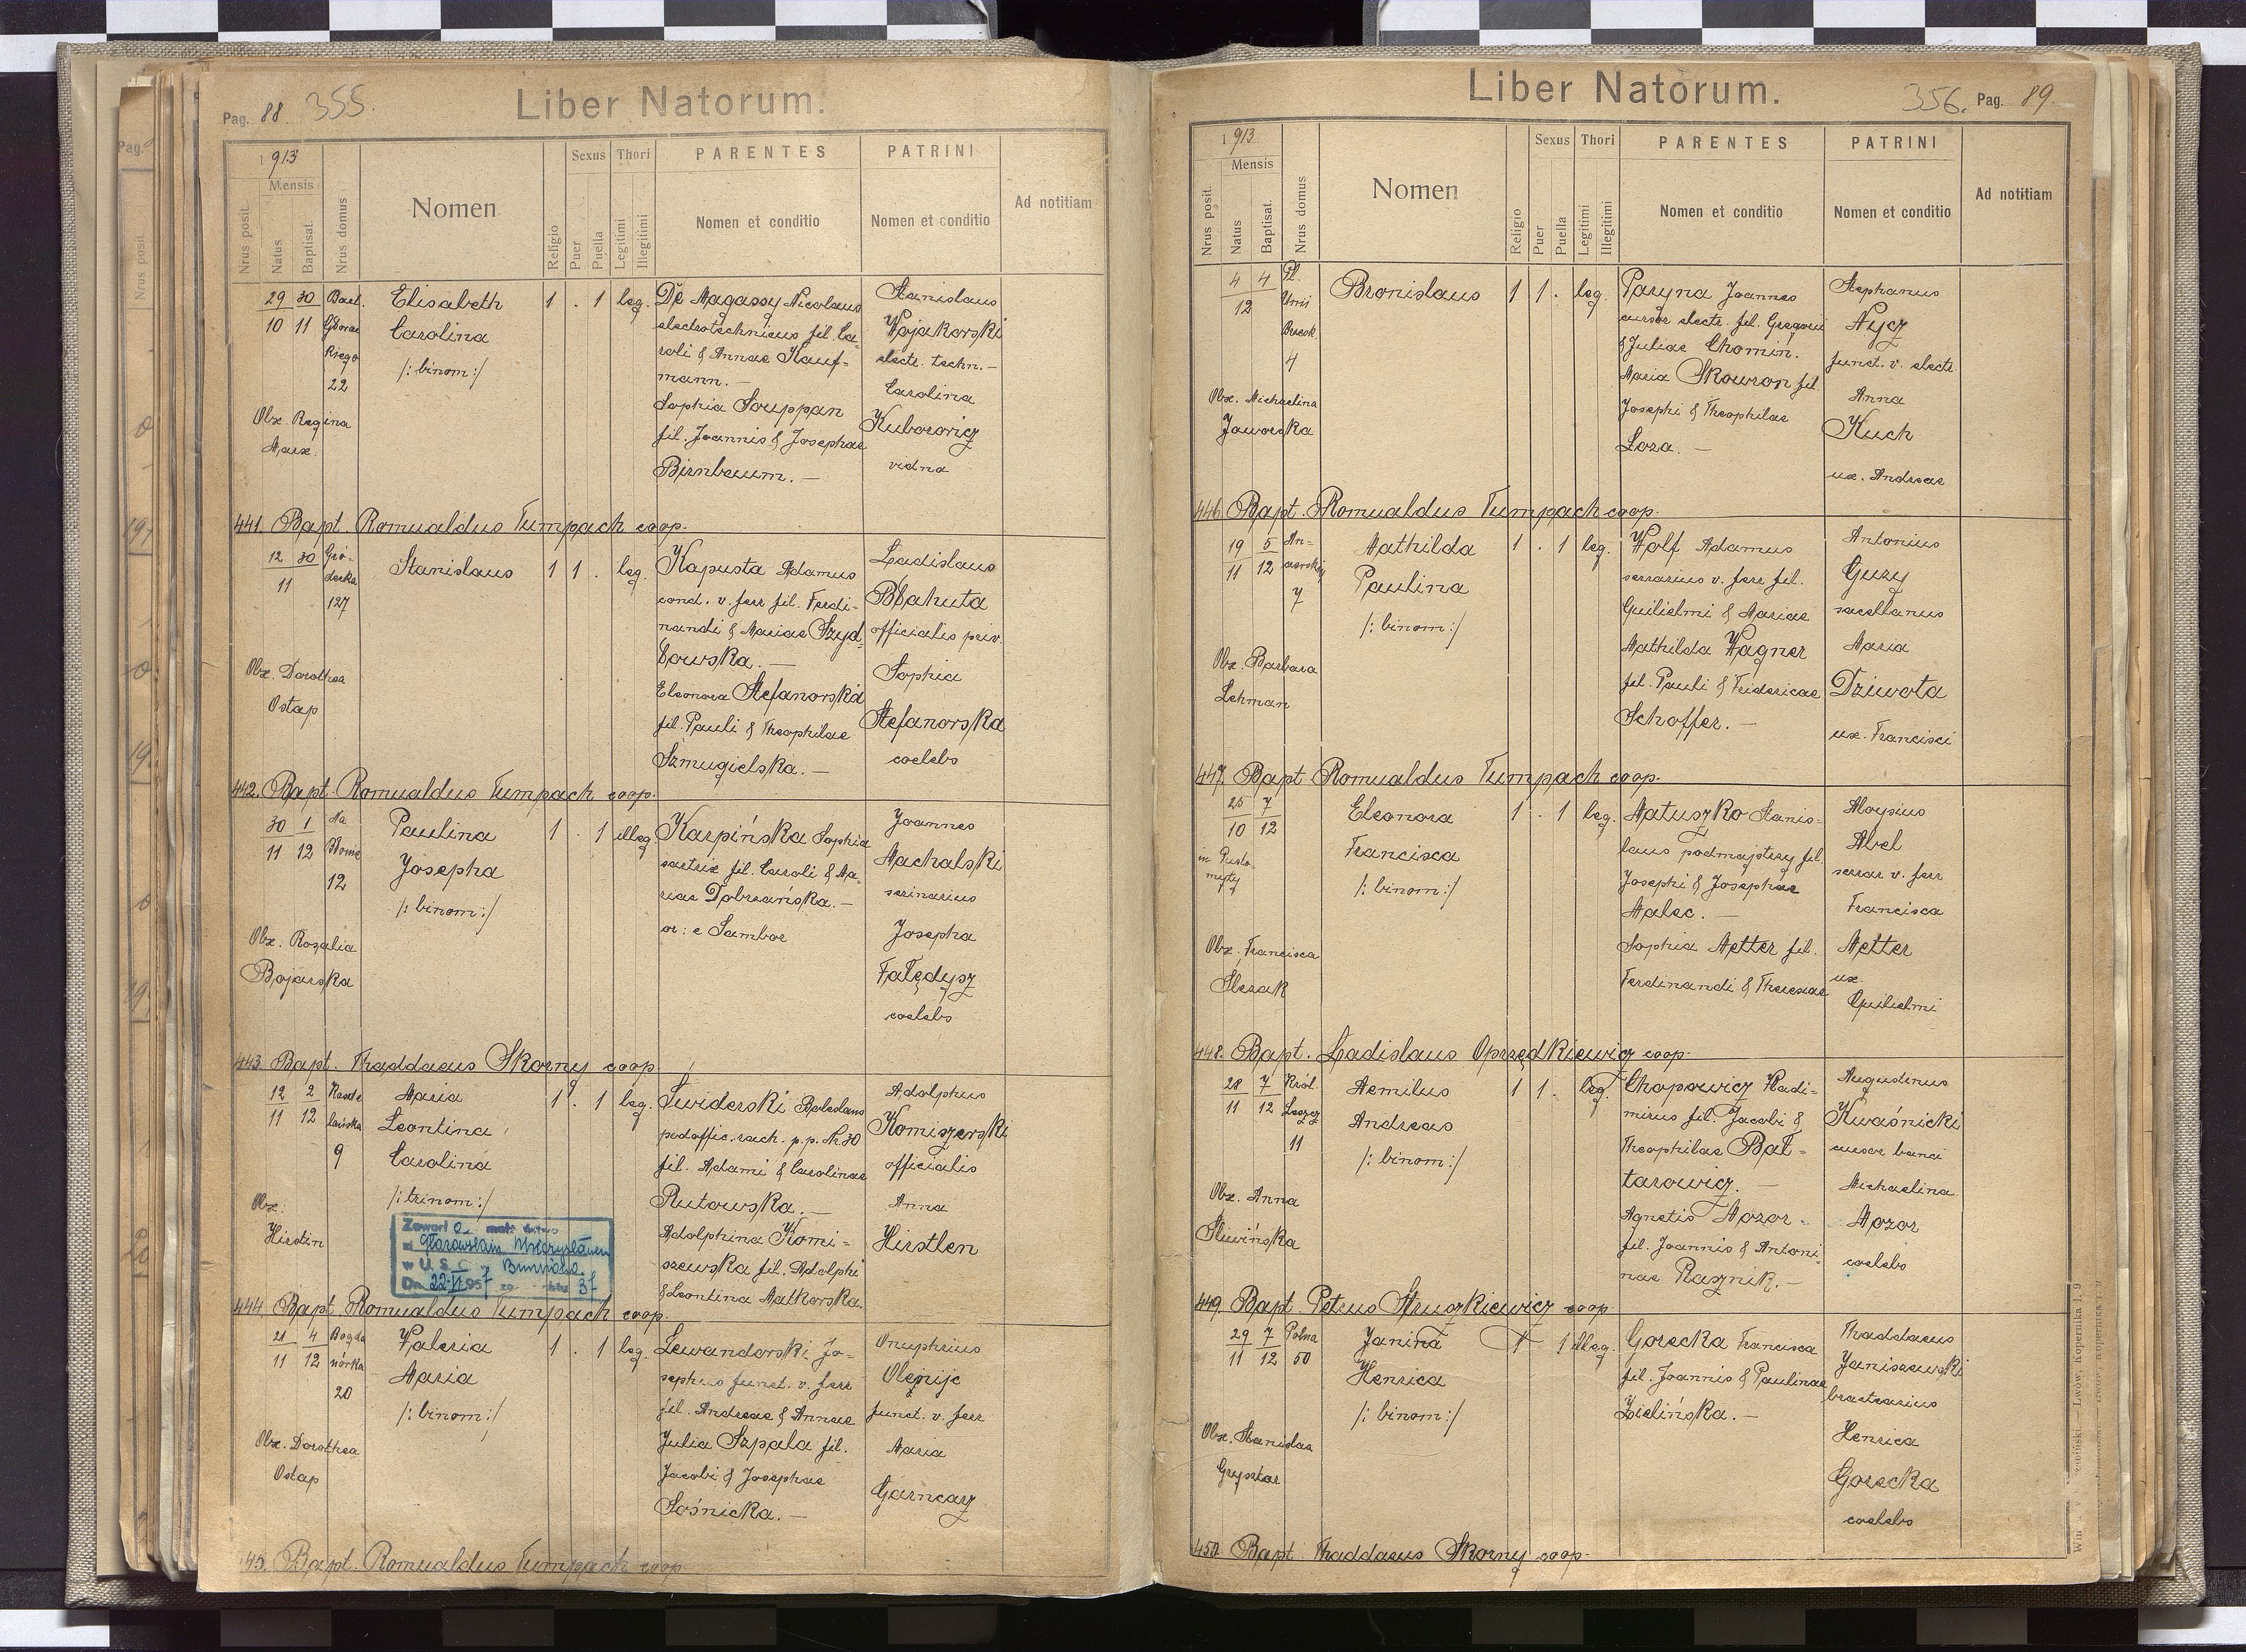 Pag. 88. 355.
Liber Natorum.
1913
Mensis
Nrus posit.
Natus
Baptisat.
Nrus domus
Nomen
Religio
Sexus
Puer
Puella
Thori
Legitimi
Illegitimi
PARENTES
Nomen et conditio
PATRINI
Nomen et conditio
Ad notitiam
29 30
10 11
22
Elisabeth
Carolina
/: binom:/
1 . 1 leg.
De Magassy Nicolaus
electrotechnicus fil. Ca-
roli & Annae Kauf-
mann. —
Sophia Souppan
fil. Joannis & Josephae
Birnbaum. —
Stanislaus
Wojakorski
electr. techn. —
Carolina
Kuborowicz
vidna
Obx. Regina
Maux.
441. Bapt. Romualdus Tumpach coop.
12 30
11
Gró-
decka
127
Stanislaus
1 1 . leg.
Kapusta Adamus
cond. v. ferr fil. Ferdi-
nandi & Mariae Szyd-
łowska. —
Eleonora Stefanorska
fil. Pauli & Theophilae
Szmugielska. —
Ladislaus
Błahuta
officialis priv.
Sophia
Stefanorska
coelebs
Obx. Dorothea
Ostap
442. Bapt. Romualdus Tumpach coop.
30 1
11 12
Na
Błonie
12
Paulina
Josepha
/: binom:/
1 . 1 illeg.
Karpińska Sophia
sartrix fil. Caroli & Ma-
riae Dobrzańska. —
or: e Sambor
Joannes
Machalski
scrinarius
Josepha
Fałędysz
coelebs
Obx. Rozalia
Bojarska
443. Bapt. Thaddaeus Skorny coop.
12 2
11 12
9
Maria
Leontina
Carolina
/: trinom:/
1 . 1 leg.
Świderski Boleslaus
podoffic. rach. p.p. Nr 30
fil. Adami & Carolinae
Rutowska. —
Adolphina Komi-
szewska fil. Adolphi
& Leontina Matkorska.
Adolphus
Komiszerski
officialis
Anna
Hirstlen
Obx:
Hirstin
Zawarł a
w U. S. C.
Dn. 22 VI 957 37
444. Bapt. Romualdus Tumpach coop.
21 4
11 12
Bogda
nórka
20
Valeria
Maria
/: binom:/
1 . 1 leg.
Lewandorski Jo-
sephus funct. v. ferr
fil. Andreae & Annae
Julia Szpala fil.
Jacobi & Josephae
Sośnicka. —
Onuphrius
Olejnijc
funct. v. ferr
Maria
Garncarz
Obx. Dorothea
Ostap
445. Bapt. Romualdus Tumpach coop.
Liber Natorum.
356. Pag. 89.
1913
Mensis
Nrus posit.
Natus
Baptisat.
Nrus domus
Nomen
Religio
Sexus
Puer
Puella
Thori
Legitimi
Illegitimi
PARENTES
Nomen et conditio
PATRINI
Nomen et conditio
Ad notitiam
4 4
12
Pl.
Unii
Brzesk.
4
Bronislaus
1 1 . leg.
Paryna Joannes
cursor electr. fil. Gregorii
& Juliae Chomin.
Maria Skowron fil.
Josephi & Theophilae
Loza. —
Stephanus
Nycz
funct. v. electr.
Anna
Kuch
ux. Andreae
Obx. Michaelina
Jaworska
446. Bapt. Romualdus Tumpach coop.
19 5
11 12
7
Mathilda
Paulina
/: binom:/
1 . 1 leg.
Wolf Adamus
serrarius v. ferr fil.
Guilielmi & Mariae
Mathilda Wagner
fil. Pauli & Fridericae
Schoffer. —
Antonius
Guzy
sacellanus
Maria
Dziwota
ux. Francisci
Obx. Barbara
Lehman
447. Bapt. Romualdus Tumpach coop.
25 7
10 12
in Pusto-
myty
Eleonora
Francisca
/: binom:/
1 . 1 leg.
Matuszko Stanis-
laus podmajstrzy fil.
Josephi & Josephae
Malec. —
Sophia Metter fil.
Ferdinandi & Theresiae
Aloysius
Abel
serrar v. ferr
Francisca
Metter
ux.
Guilielmi
Obx. Francisca
Ślezak
448. Bapt. Ladislaus Oprzędkiewicz coop.
28 7
11 12
Król.
Leszcz
11
Aemilus
Andreas
/: binom:/
1 1 . leg.
Chopowicz Kadi-
mirus fil. Jacobi &
Theophilae Bał-
tarowicz. —
Agnetis Mozor
fil. Joannis & Antoni-
nae Raznik. —
Augustinus
Kwaśnicki
cursor banci
Michaelina
Mozor
coelebs
Obx. Anna
Śliwińska
449. Bapt. Petrus Struszkiewicz coop.
29 7
11 12
Polna
50
Janina
Henrica
/: binom:/
1 1 illeg.
Gorecka Francisca
fil. Joannis & Paulinae
Zielińska. —
Thaddaeus
Janiszewski
bractearius
Henrica
Gorecka
coelebs
Obx. Stanislaa
Grysztar
450. Bapt. Thaddaeus Skorny coop.
Lwów, Kopernika 1. 9